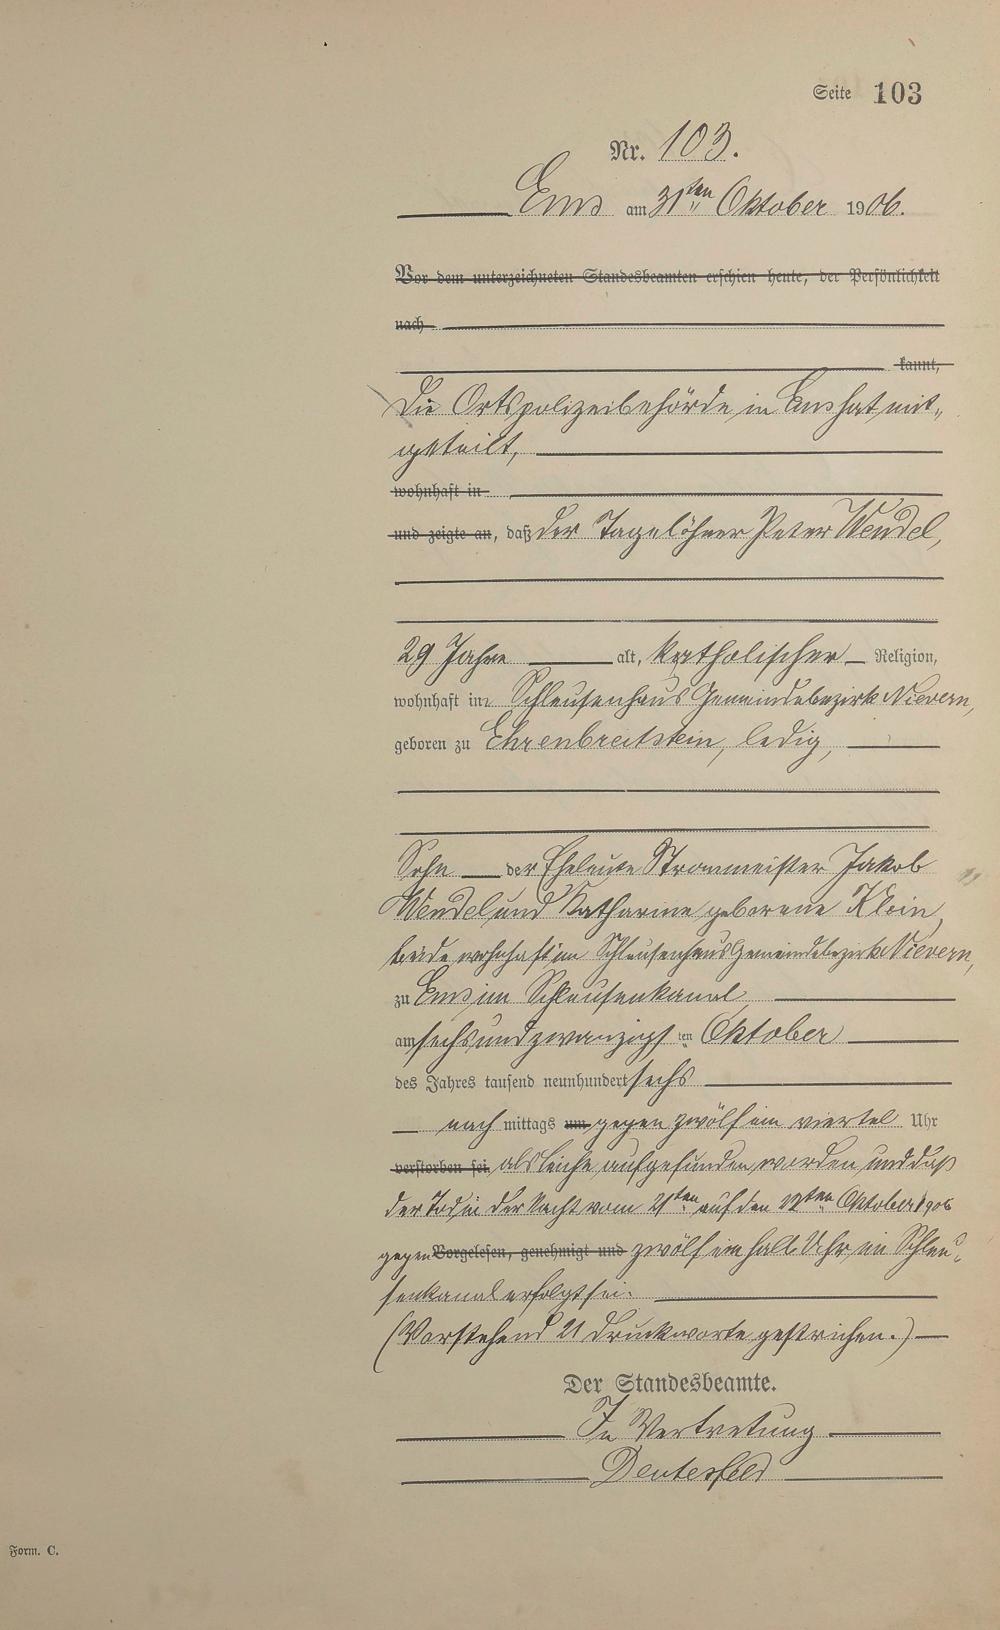 Seite 103
Nr. 103.
Ems am 31ten Oktober 1906.
Vor dem unterzeichneten Standesbeamten erschien heute, der Persönlichkeit
nach
kannt,
Die Ortspolizeibehörde in Ems hat mit-
geteilt,
wohnhaft in
und zeigte an, daß der Tagelöhner Peter Wendel,
29 Jahre alt, katholischer Religion,
wohnhaft im Schleusenhaus Gemeindebezirk Nievern,
geboren zu Ehrenbreitstein, ledig,
Sohn der Eheleute Strommeister Jakob
Wendel und Katharine geborene Klein,
beide wohnhaft im Schleusenhaus Gemeindebezirk Nievern,
zu Ems im Schleusenkanal
am sechsundzwanzigsten Oktober
des Jahres tausend neunhundert sechs
nach mittags um gegen zwölf ein viertel Uhr
verstorben sei, als Leiche aufgefunden worden, und daß
der Tod in der Nacht vom 21ten auf den 22ten Oktober 1906
gegen Vorgelesen, genehmigt und zwölf ein halb Uhr im Schleu-
senkanal erfolgt sei.
(Vorstehend 21 Druckworte gestrichen.)
Der Standesbeamte.
In Vertretung
Deutesfeld
Form. C.